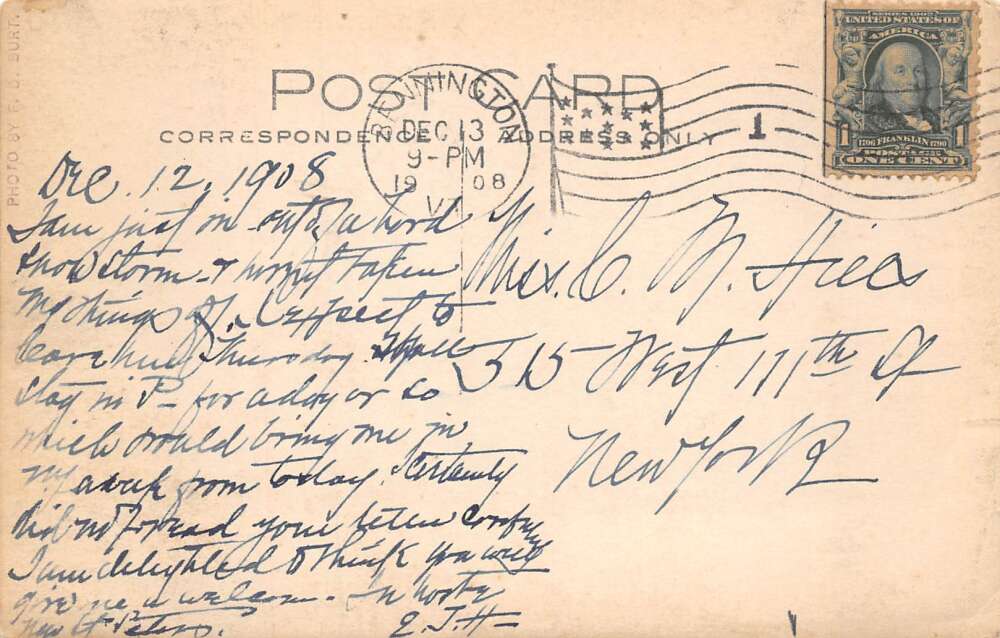 PHOTO BY F. D. BURT.
POST CARD
CORRESPONDENCE ADDRESS ONLY
BENNINGTON
DEC 13
9-PM
1908
VT
1
SERIES 1902
UNITED STATES OF
AMERICA
1 1
1706 FRANKLIN 1790
ONE CENT
Dec. 12, 1908
I am just in out of a hard
snow storm & have not taken
my things off. I expect to
leave here Thursday. Shall
stay in P- for a day or so
which would bring me in
N.Y. a week from today. I certainly
did not read your letter
I am delighted to think you will
give me a welcome. In haste
E.J.H-
Mrs. C. M. Hills
515 West 111th St
New York